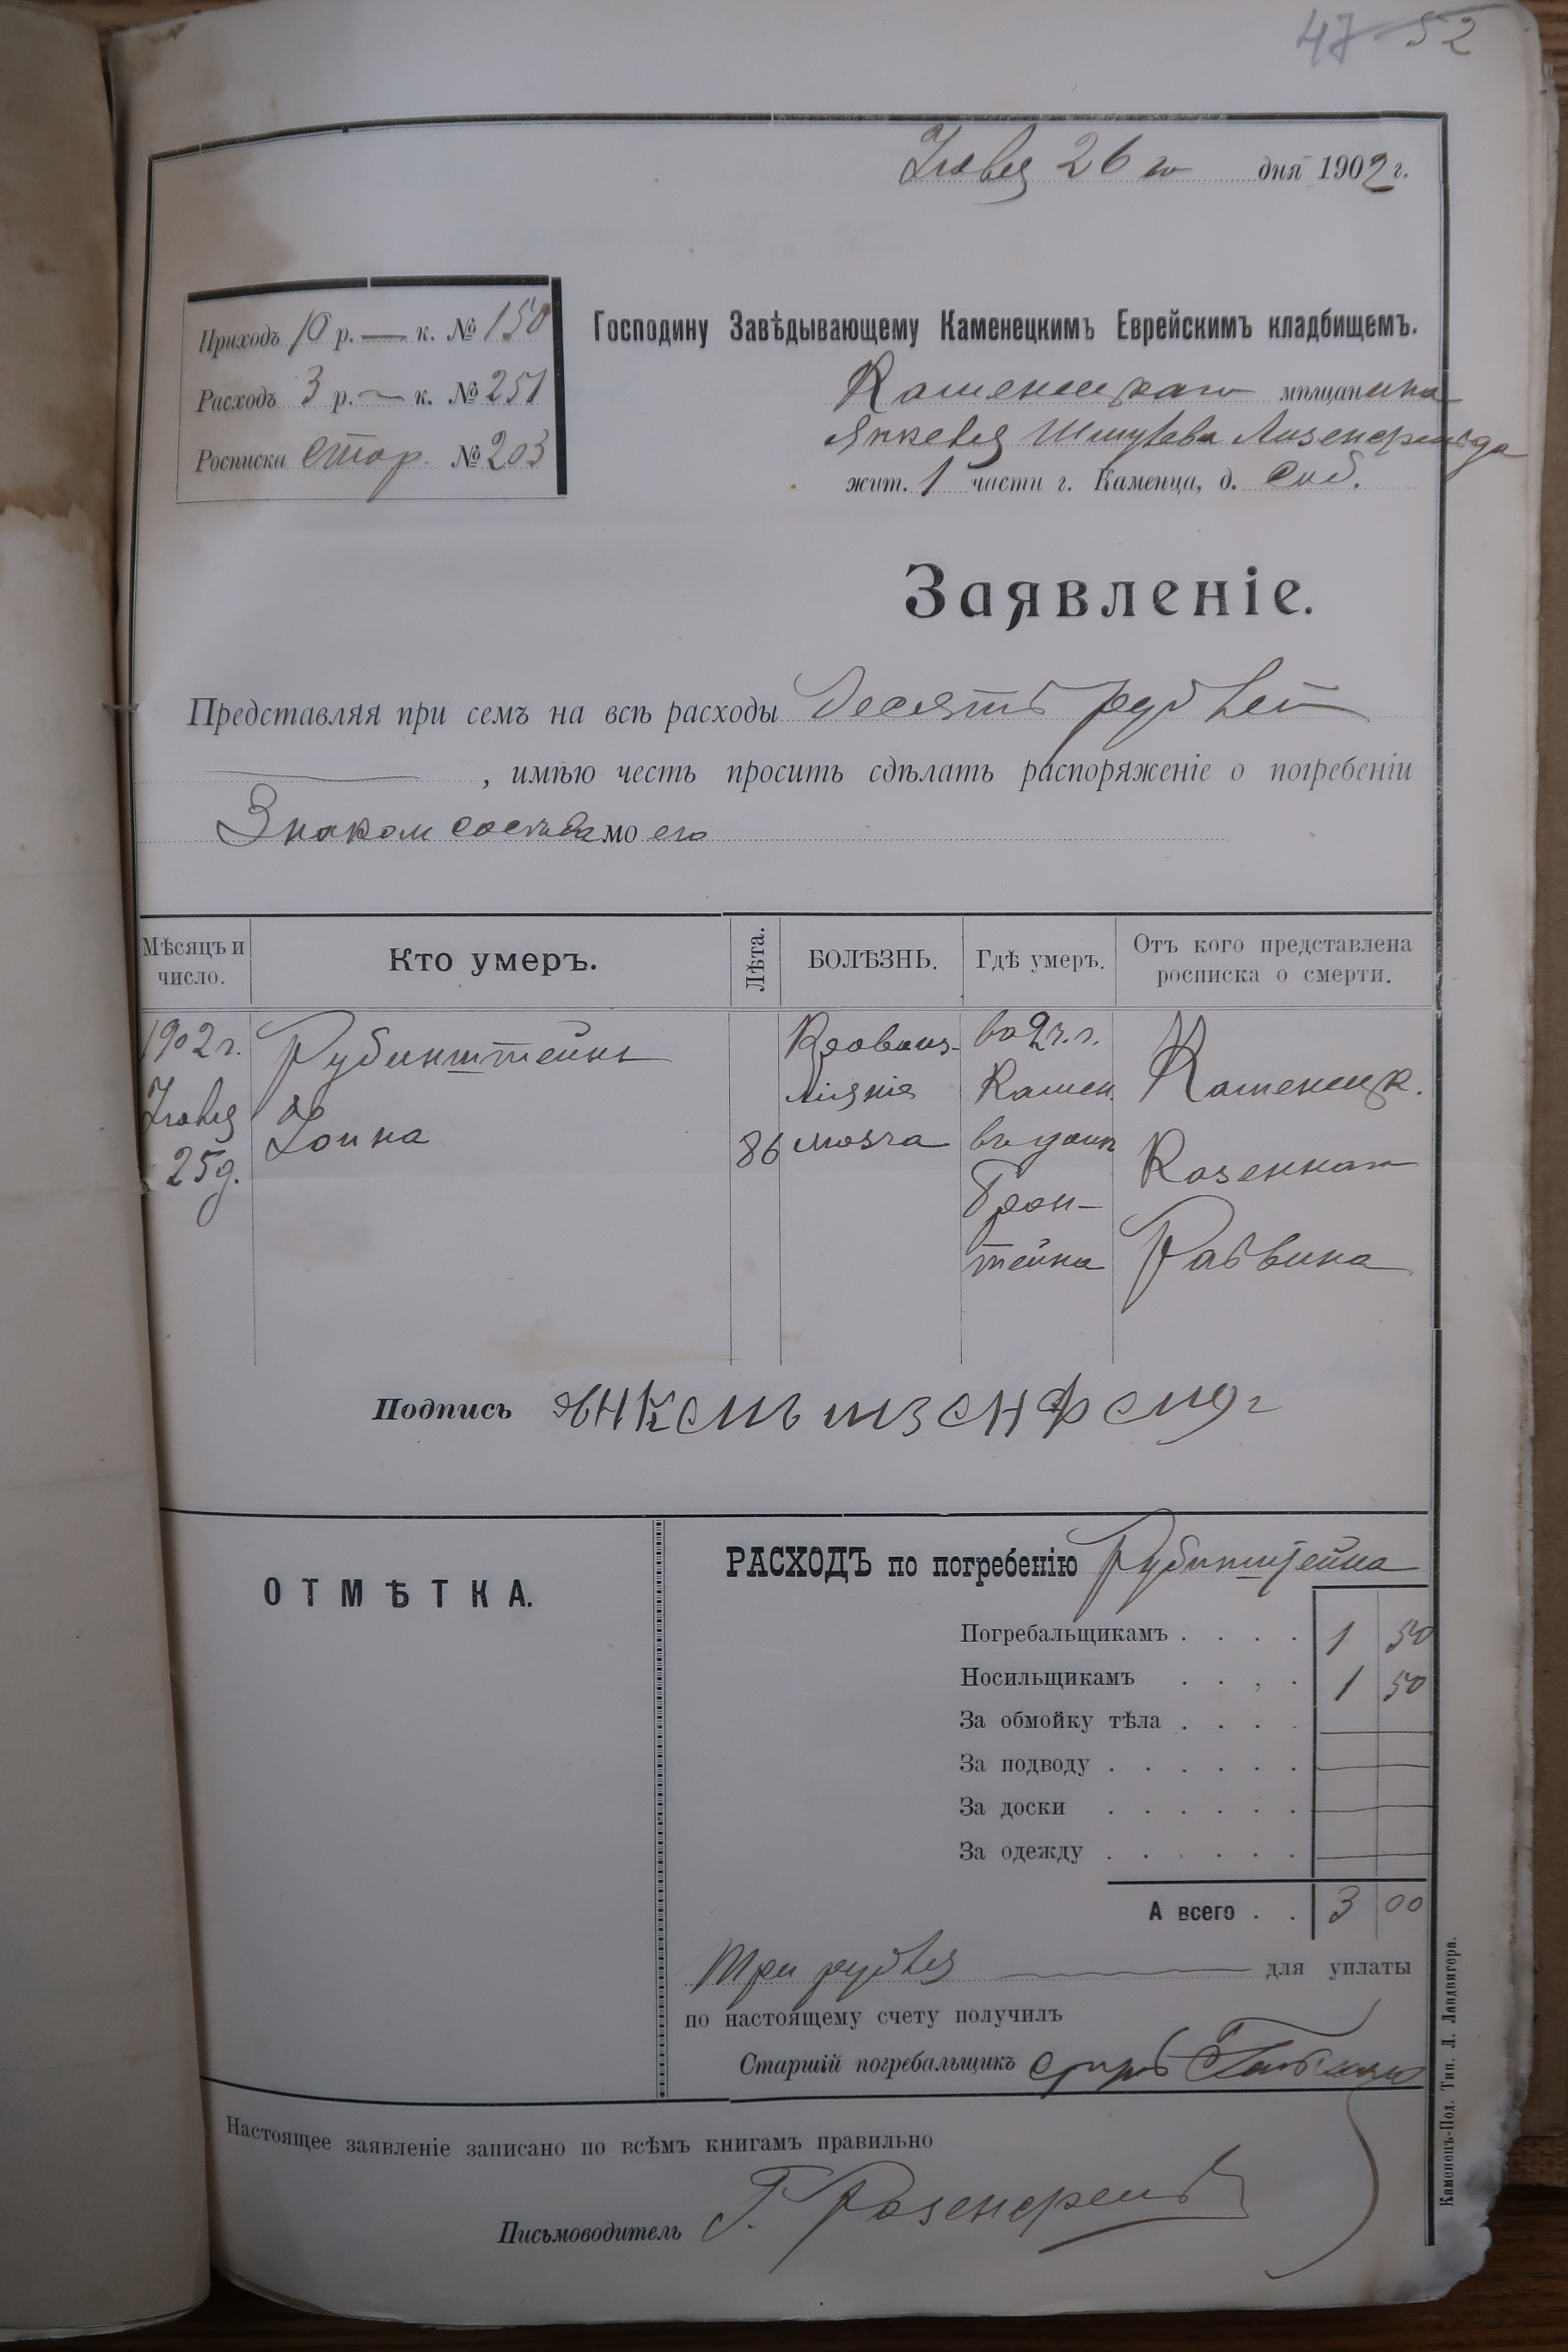 47 52
Іюля 26 го дня 1902 г.
Приходъ 10 р. — к. № 150
Расходъ 3 р. — к. № 251
Росписка стор. № 203
Господину Завѣдывающему Каменецкимъ Еврейскимъ кладбищемъ.
Каменецкаго мѣщанина
Янкеля Шмулева Айзенфельда
жит. 1 части г. Каменца, д. соб.
Заявленіе.
Представляя при семъ на всѣ расходы Десять рублей
, имѣю честь просить сдѣлать распоряженіе о погребеніи
Знаком мо его
Мѣсяцъ и число.
Кто умеръ.
Лѣта.
БОЛѢЗНЬ.
Гдѣ умеръ.
Отъ кого представлена росписка о смерти.
1902 г.
Іюля
25 д.
Рубинштейнъ
86
Кровоиз-
ліяніе
мозга
во 2 ч. г.
Камен.
въ домѣ
Брон-
тейна
Каменецк.
Казеннаго
Раввина
Подпись Янкель изенфелд
ОТМѢТКА.
РАСХОДЪ по погребенію Рубинштейна
Погребальщикамъ . . . . 1 50
Носильщикамъ . . , . 1 50
За обмойку тѣла . . . . —
За подводу . . . . . . —
За доски . . . . . . —
За одежду . . . . . . —
А всего . . 3 00
Три рубля — для уплаты
по настоящему счету получилъ
Старшій погребальщикъ
Настоящее заявленіе записано по всѣмъ книгамъ правильно
Письмоводитель Г. Розенфельд
Каменецъ-Под. Тип. Л. Ландвигера.